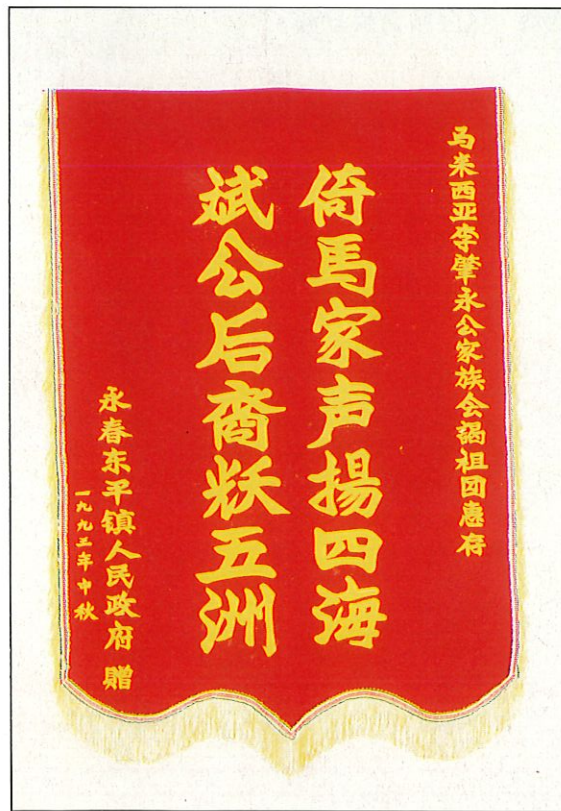 马来西亚李肇永公家族会谒祖团惠存
倚馬家声揚四海
斌公后裔粀五洲
永春东平镇人民政府 贈
一九九三年中秋